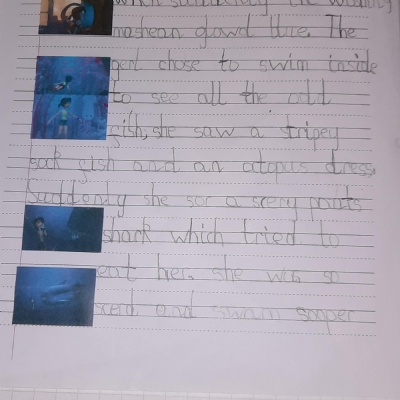 when suddendly the washing
mashean glowd blue. The
girl chose to swim inside
to see all the odd
fish, she saw a stripey
sock fish and an otopus dress.
Suddonly she sor a scery pants
shark which tried to
eat her. she was so
scerd and swam sooper